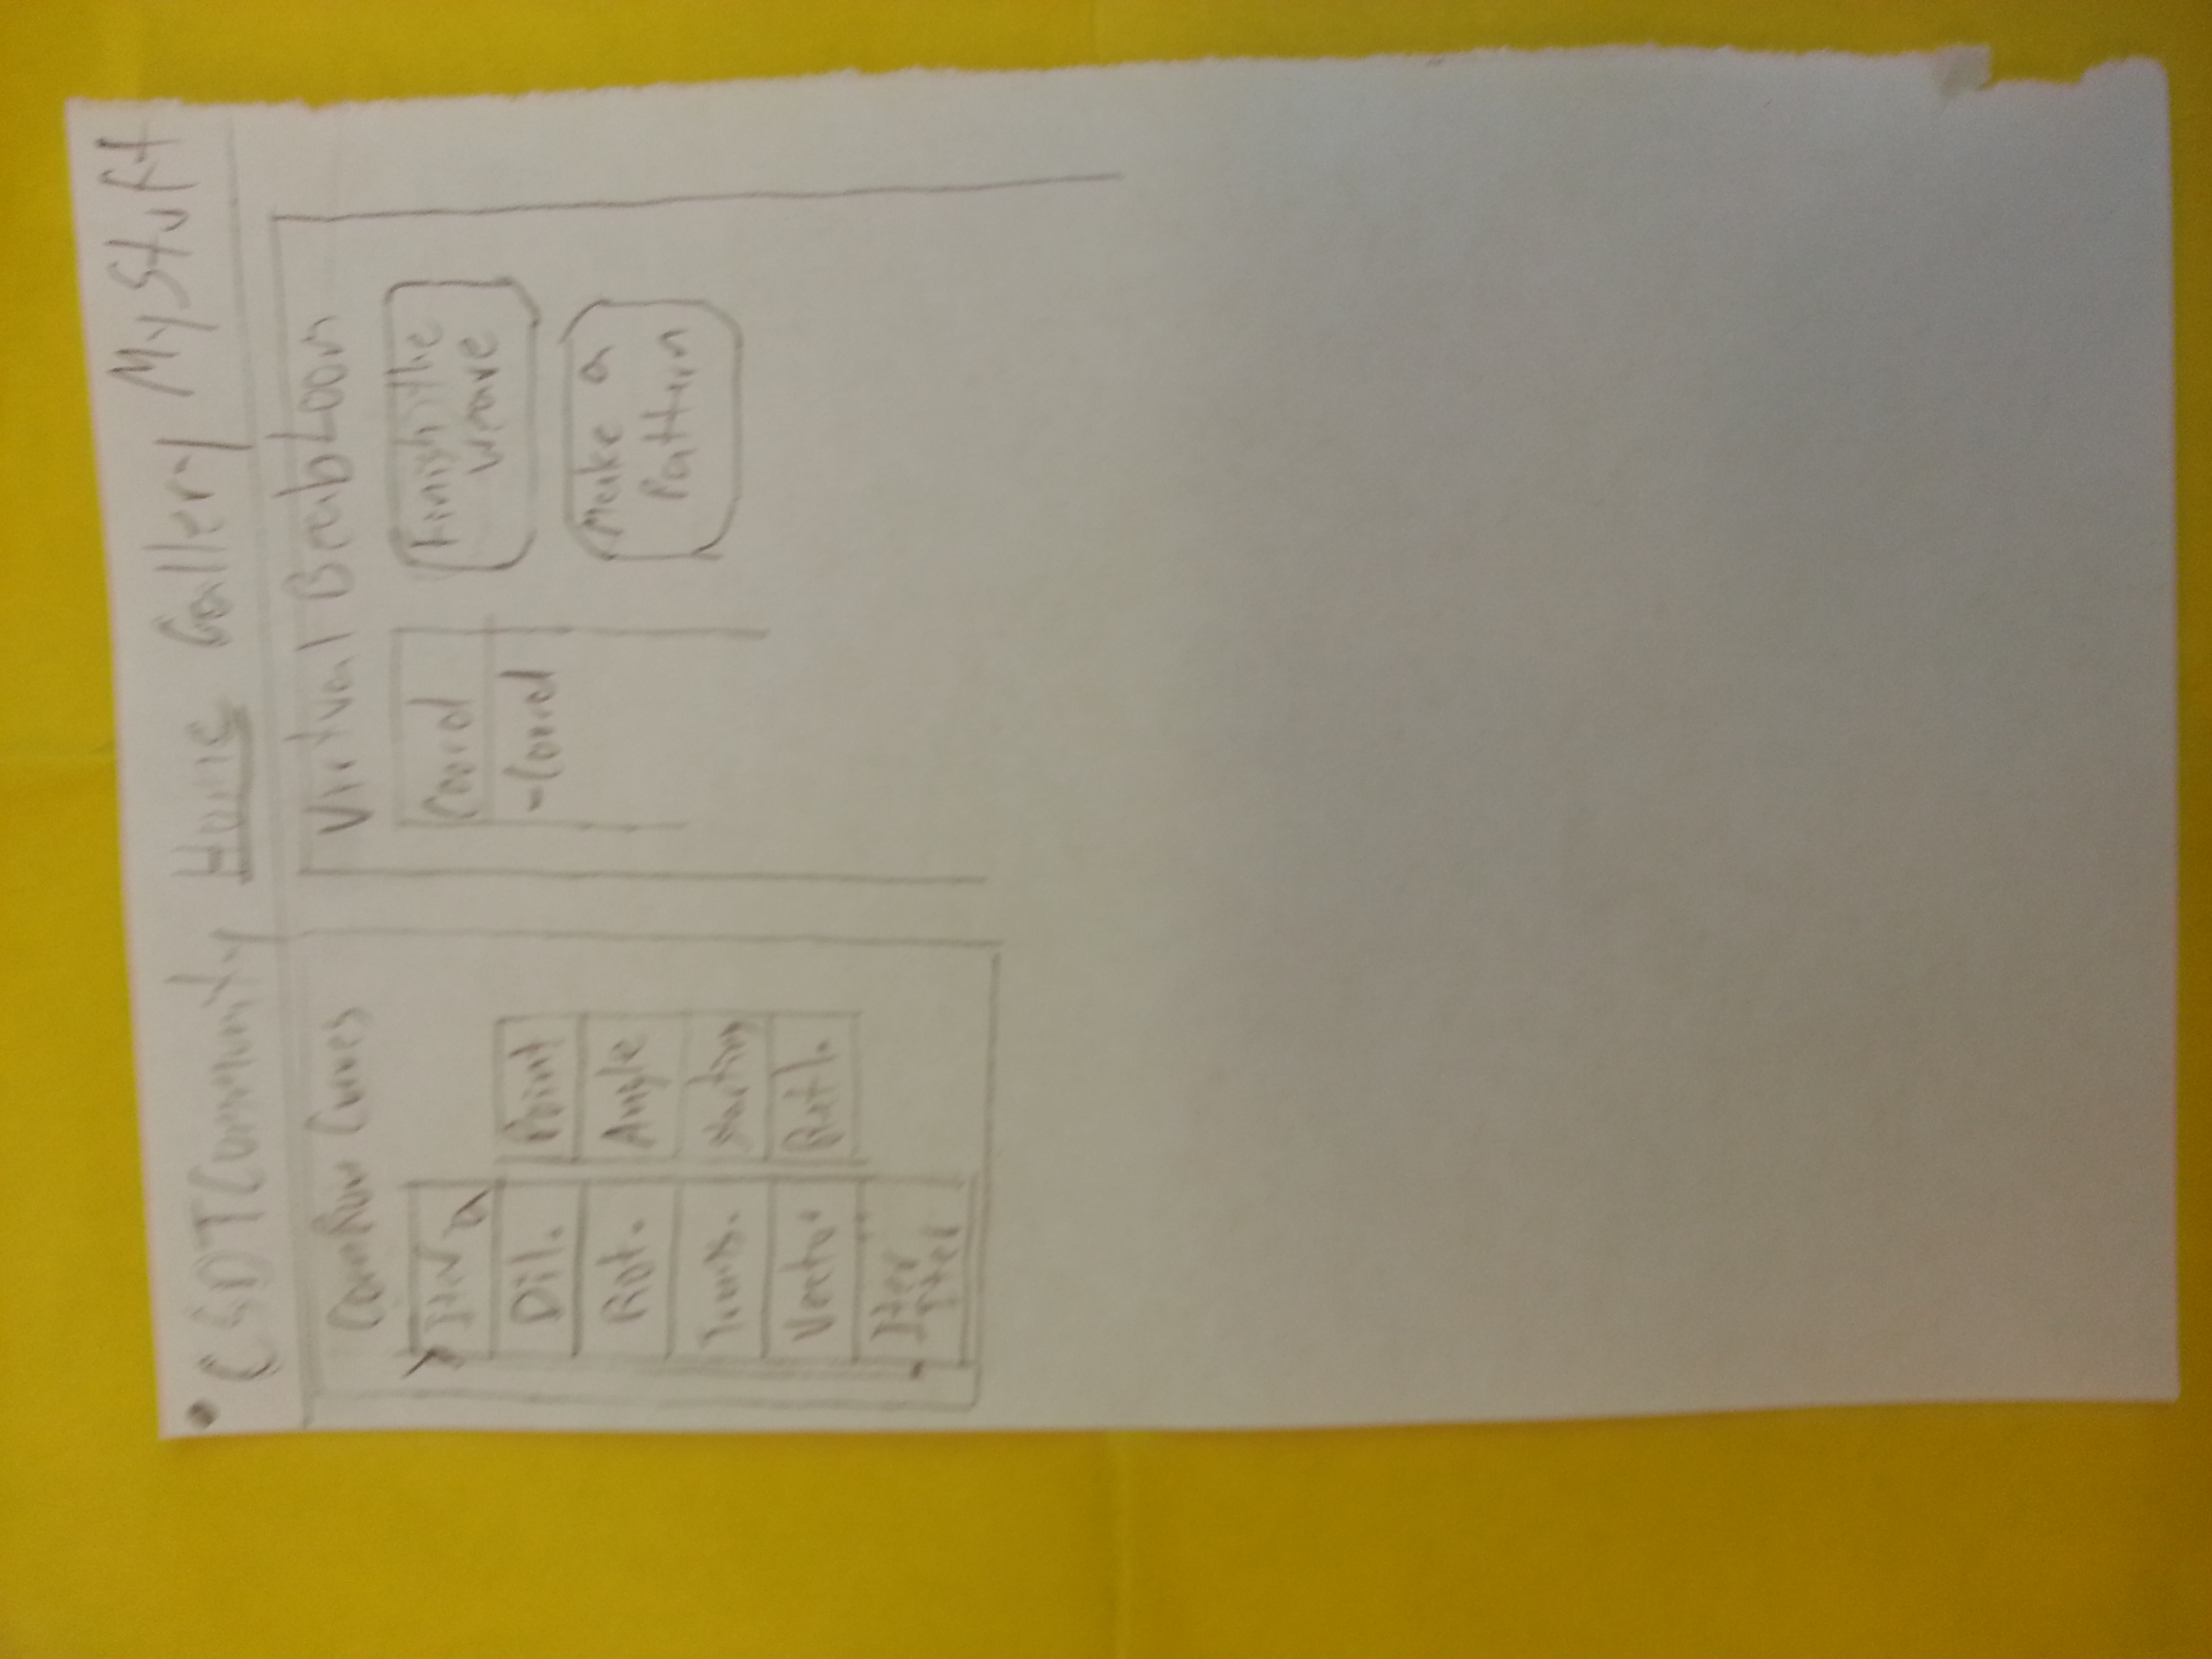 CSDT Community Home Gallery My Stuff
CornRow Curves
Iter a
Dil.
Rot.
Trans.
Vector
Iter
Iter
Point
Angle
starting
Refl.
Virtual BeabLoom
Coord
-Coord
Finish the
weave
Make a
Pattern